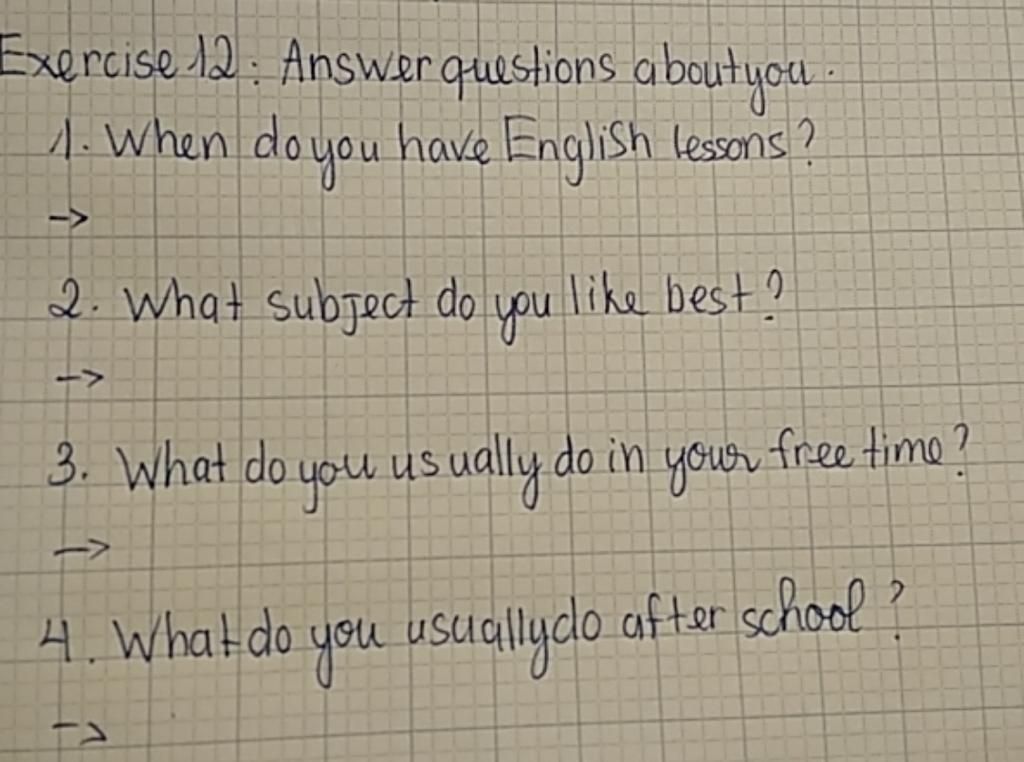 Exercise 12: Answer questions about you.
1. When do you have English lessons?
->
2. What subject do you like best?
->
3. What do you usually do in your free time?
->
4. What do you usually do after school?
->